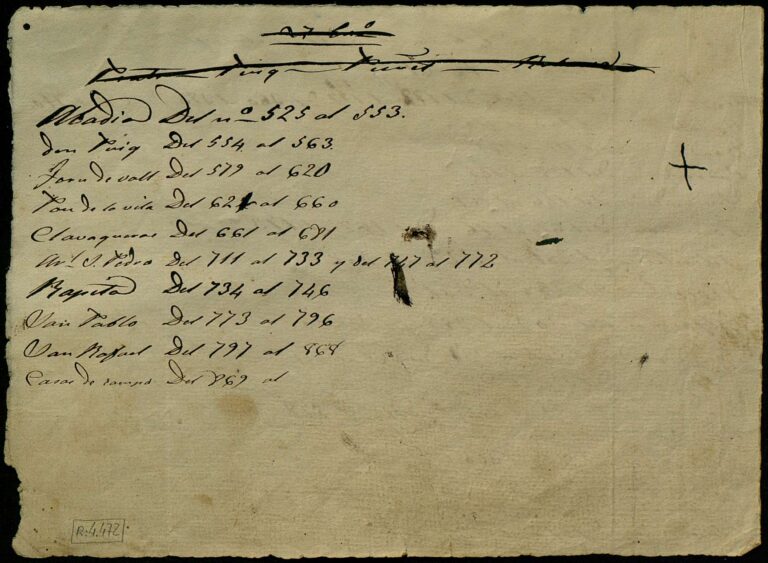 Abadia Del nº 525 al 553.
den Puig Del 554 al 563.
Forn de vall Del 579 al 620
Pou de la vila Del 621 al 660
Clavagueras Del 661 al 681
Arl S. Pedro Del 711 al 733 y del 747 al 772
Rapita Del 734 al 746
San Pablo Del 773 al 796
San Rafael Del 797 al 868
Casas de campo Del 869 al
R.4.472